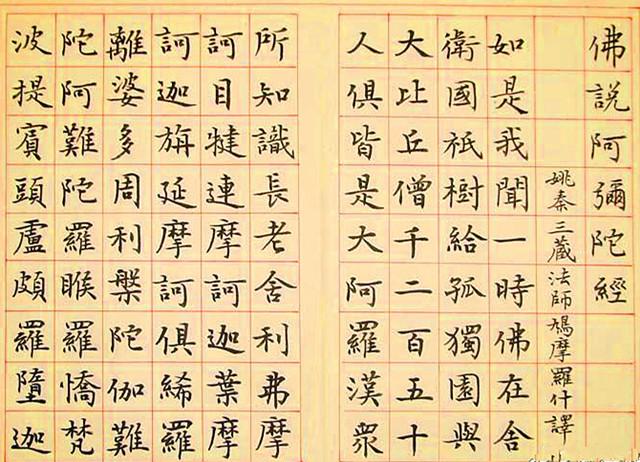 佛說阿彌陀經
姚秦三藏法師鳩摩羅什譯
如是我聞一時佛在舍
衛國祇樹給孤獨園與
大比丘僧千二百五十
人俱皆是大阿羅漢衆
所知識長老舍利弗摩
訶目犍連摩訶迦葉摩
訶迦旃延摩訶俱絺羅
離婆多周利槃陀伽難
陀阿難陀羅睺羅憍梵
波提賓頭盧頗羅墮迦